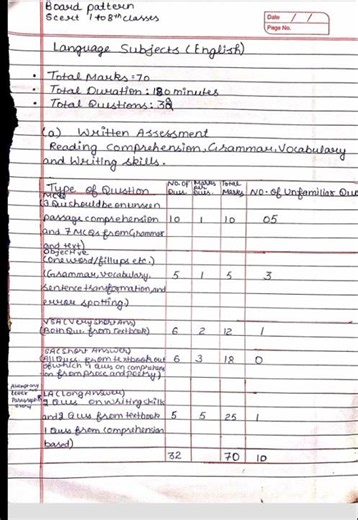 Board pattern
Scert 1 to 8th classes
Date / /
Page No.
Language Subjects (English)
• Total Marks = 70
• Total Duration : 180 minutes
• Total Questions : 32
(a) Written Assessment
Reading comprehension, Grammar, Vocabulary
and Writing skills.
Type of Question No. of Ques. Marks per Ques. Total Marks No. of Unfamiliar Ques
MCQ
(3 Qu should be on unseen
passage comprehension 10 1 10 05
and 7 MCQs from Grammar
and text)
Objective
(one word/fillups etc.)
(Grammar, vocabulary, 5 1 5 3
sentence transformation, and
error spotting)
VSA (Very Short Ans)
Qu. from Textbook) 6 2 12 1
SA (Short Answer)
(All Ques from textbook out 6 3 18 0
of which 1 Ques on comprehen
on from prose and poetry)
LA (Long Answer)
2 Ques on writing skills
and 2 Ques from textbook 5 5 25 1
1 Ques from comprehension
based)
32 70 10